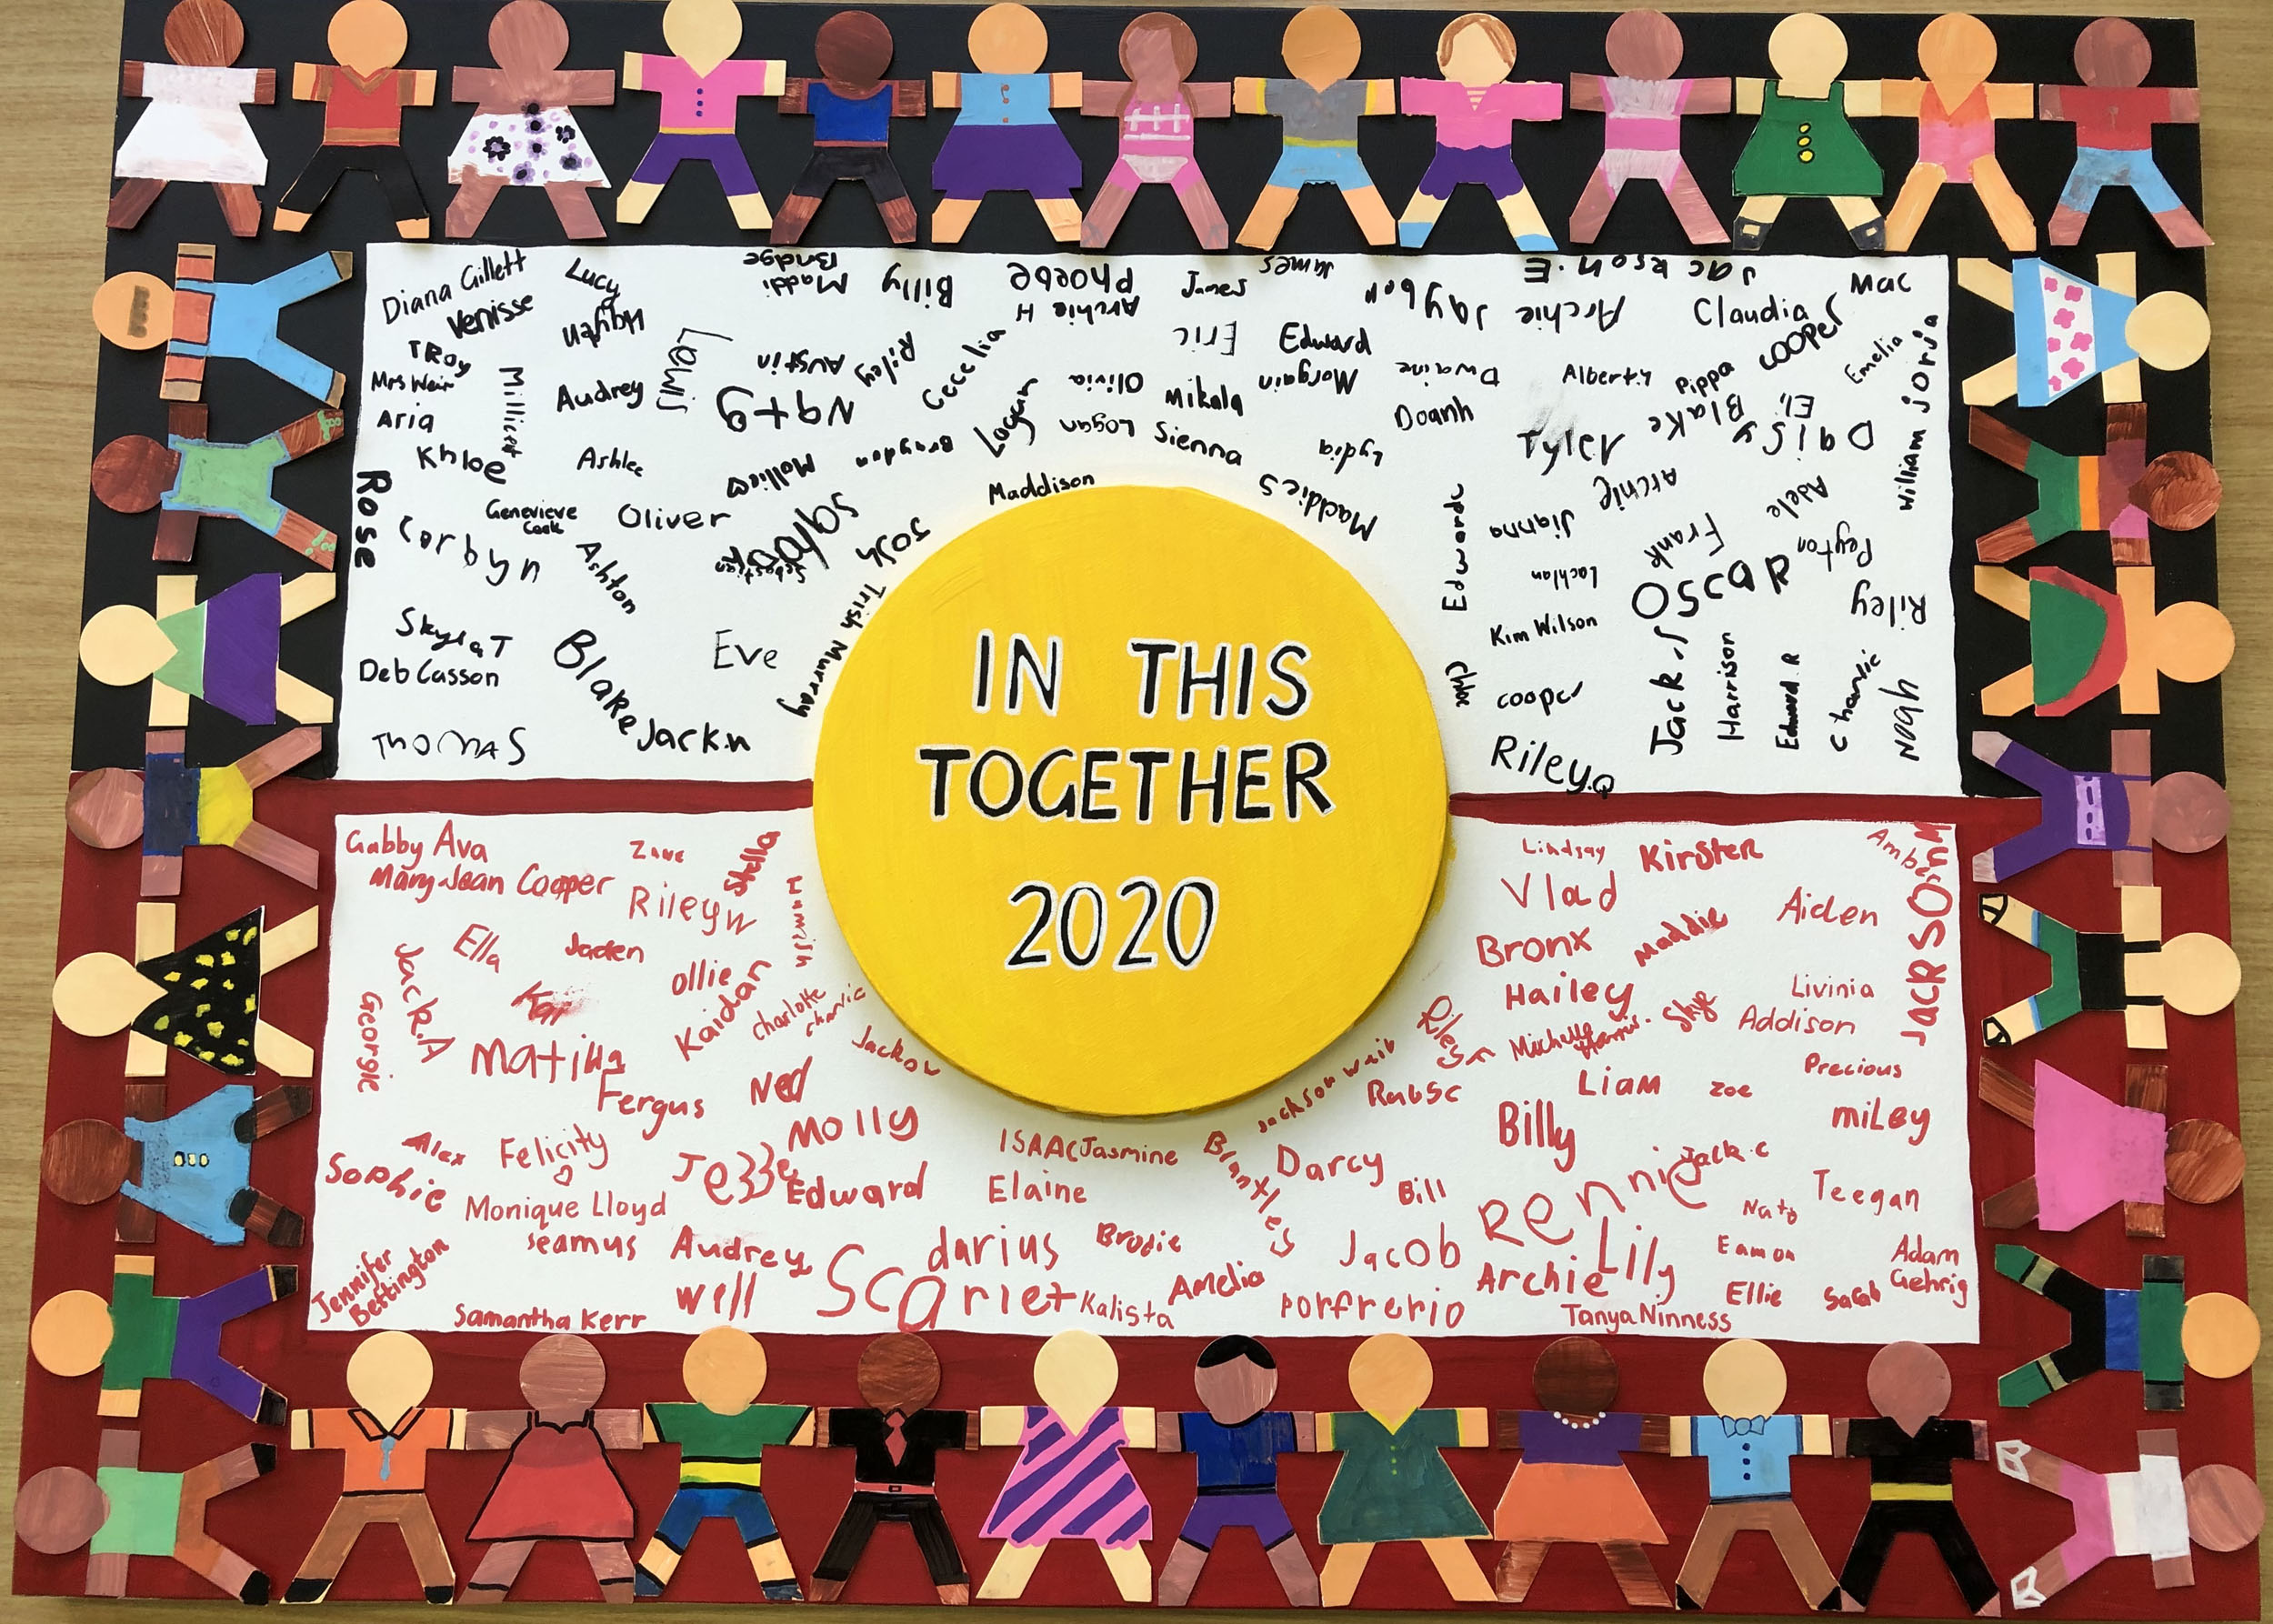 Diana Gillett
Lucy
Maddi
Bridge
Billy
Phoebe
Archie H
James
James
Jayben
Jackson.E
Archie
Claudia
Mac
Venisse
Hayden
Lewis
Austin
Riley
Cecelia
Eric
Edward
Cooper
Emelia
Jorja
William
Troy
Mrs Weir
Millicent
Audrey
Nate
Olivia
Mikala
Morgain
Dwaine
Pippa
Aria
Logan
Sienna
Lydia
Doanh
Tylah
Blake
Eli
Daisy
Khloe
Ashlee
Mollie
Brayden
Maddison
Maddie S
Archie
Adele
Rose
Corbyn
Genevieve
Cook
Oliver
Sebastian
Josh
Edward
Jianna
Frank
Peyton
Ashton
Trish Murray
Lachlan
Oscar
Riley
Skyla T
Deb Casson
Blake
Eve
Kim Wilson
Chloe
Cooper
Jack.J
Harrison
Edward.R
Charlie
Noah
Thomas
Jack.n
Riley.Q
IN THIS
TOGETHER
2020
Gabby
Ava
Mary-Jean
Cooper
Zane
Stella
Riley W
Ella
Jaden
Ollie
Kaidan
Charlotte
Charlie
Jack.A
Georgie
Kai
Matilda
Fergus
Ned
Molly
Alex
Felicity
Sophie
Monique Lloyd
Jezze
Edward
Seamus
Audrey
Will
Jennifer
Bettington
Samantha Kerr
Scarlet
Isaac
Jasmine
Elaine
darius
Brodie
Kalista
Amelia
Brantley
Jackson Weib
Darcy
Bill
Jacob
Porfrerio
Lindsay
Kirsten
Amber
Jackson M
Vlad
Bronx
Maddie
Aiden
Hailey
Skye
Livinia
Addison
Michelle
Harris.
Liam
Zoe
Precious
Billy
Miley
Jack.C
Rennie
Teegan
Nate
Lily
Archie
Eamon
Ellie
Sarah
Adam
Gehrig
Tanya Ninness